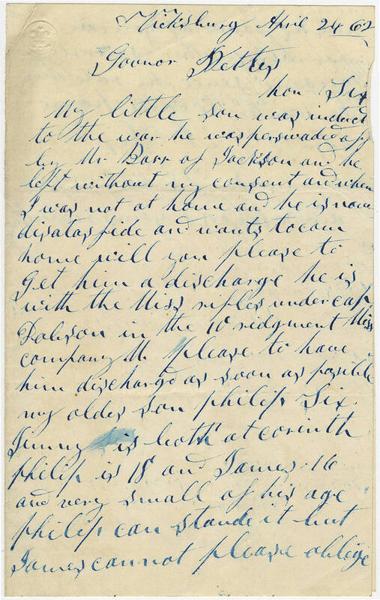 Vicksburg April 24 62
Goonor Pettus
hon Six
My little son was induct
to the war he was perswaded of
by Mr Barr of Jackson and he
left without my consent and when
I was not at home and he is now
disatasfide and wants to com
home will you please to
Get him a discharge he is
with the Miss rifles under cap
Dobson in the 10 ridgment Miss
company M please to have
him discharge as soon as posible
my older son philip Six.
Jimmy is both at corinth
philip is 18 and James 16
and very small of his age
philip can stande it but
James cannot please oblige